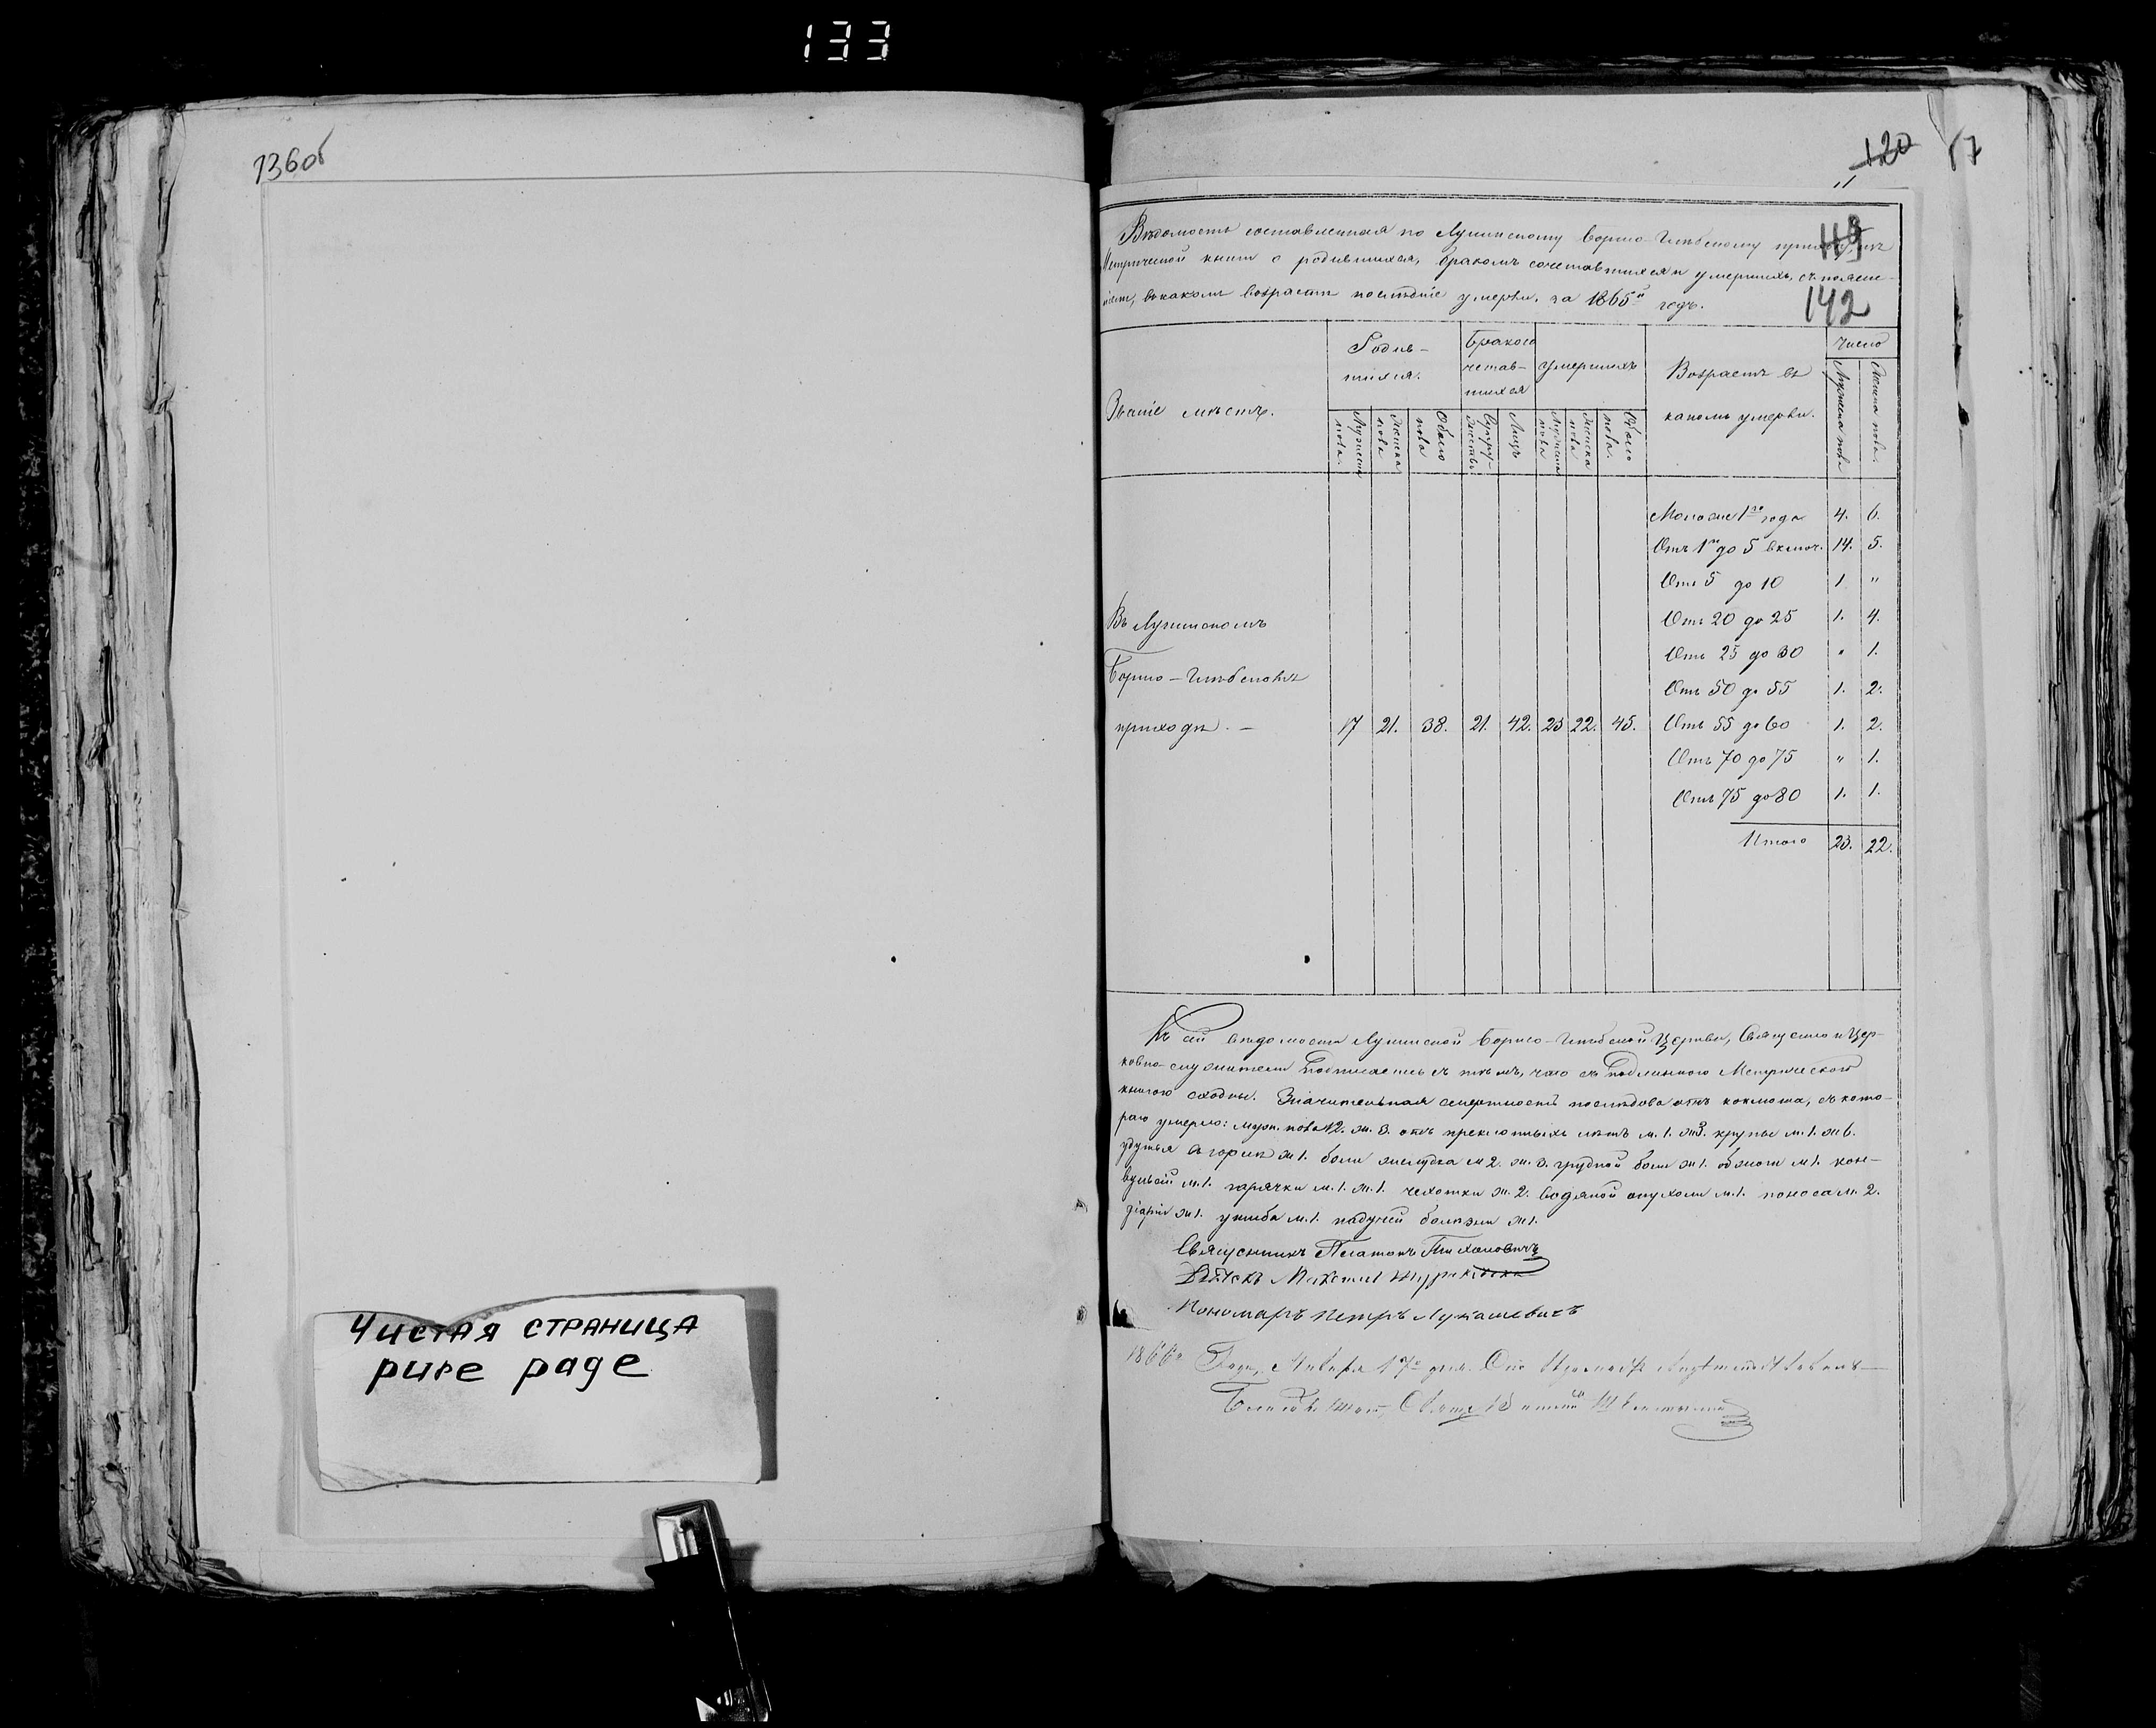 133
136об
Чистая страница
pure page
120
87
119
142
Вѣдомость составленная по Лунинскому Борисо-Глѣбскому приходу, изъ
Метрической книги о родившихся, бракомъ сочетавшихся и умершихъ, съ поясне-
ніемъ, въ какомъ возрастѣ послѣдніе умерли, за 1865й годъ.
Званіе мѣстъ.
Родив-
шихся.
Бракосо
четав-
шихся
Умершихъ
Возрастъ въ
какомъ умерли.
Число
Мужеска пола.
Женска пола
Обоего пола
Супру-жествъ
Лицъ
Мужеска пола
Женска пола
Обоего пола.
Мужеска пола
Женска пола.
Моложе 1го года 4. 6.
Отъ 1го до 5 включ. 14. 5.
Отъ 5 до 10 1 "
Отъ 20 до 25 1. 4.
Отъ 25 до 30 " 1.
Отъ 50 до 55 1. 2.
Въ Лунинскомъ
Борисо-Глѣбскомъ
приходѣ. — 17 21. 38. 21. 42. 23 22. 45. Отъ 55 до 60 1. 2.
Отъ 70 до 75 " 1.
Отъ 75 до 80 1. 1.
Итого 23. 22.
Къ сей вѣдомости Лунинской Борисо-Глѣбской Церкви, Священно и Цер-
ковно-служители Подписались съ тѣмъ, что съ Подлинною Метрическою
книгою сходны. Значительная смертность послѣдовала отъ коклюша, съ кото-
раго умерло: муж. пола 12. ж. 3. отъ преклонныхъ лѣтъ м. 1. ж 3. крупы м. 1. ж 6.
удушья въ горлѣ ж 1. боли желудка м 2. ж. 3. грудной боли ж 1. м 1. кон-
вульсій м. 1. горячки м. 1. ж. 1. чахотки ж. 2. водяной опухоли м. 1. поноса м. 2.
ж 1. ушиба м. 1. падучей болѣзни ж 1.
Священникъ Платонъ Тихоновичъ
Дьячекъ
Пономаръ Петръ Лукашевичъ
1866го Года, Января 17го дня.